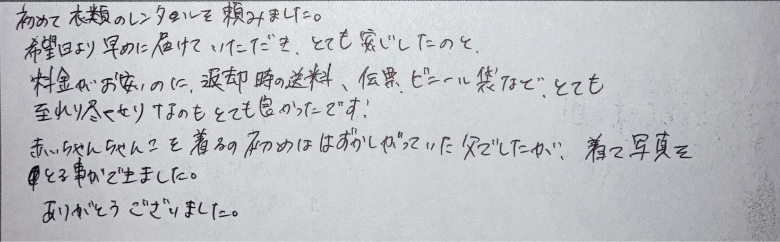 初めて衣類のレンタルを頼みました。
希望日より早めに届けていただき、とても安心したのと、
料金がお安いのに、返却時の送料、伝票、ビニール袋など、とても
至れり尽くせりなのもとても良かったです!
赤いちゃんちゃんこを着るの初めははずかしがっていた父でしたが、着て写真を
とる事ができました。
ありがとうございました。